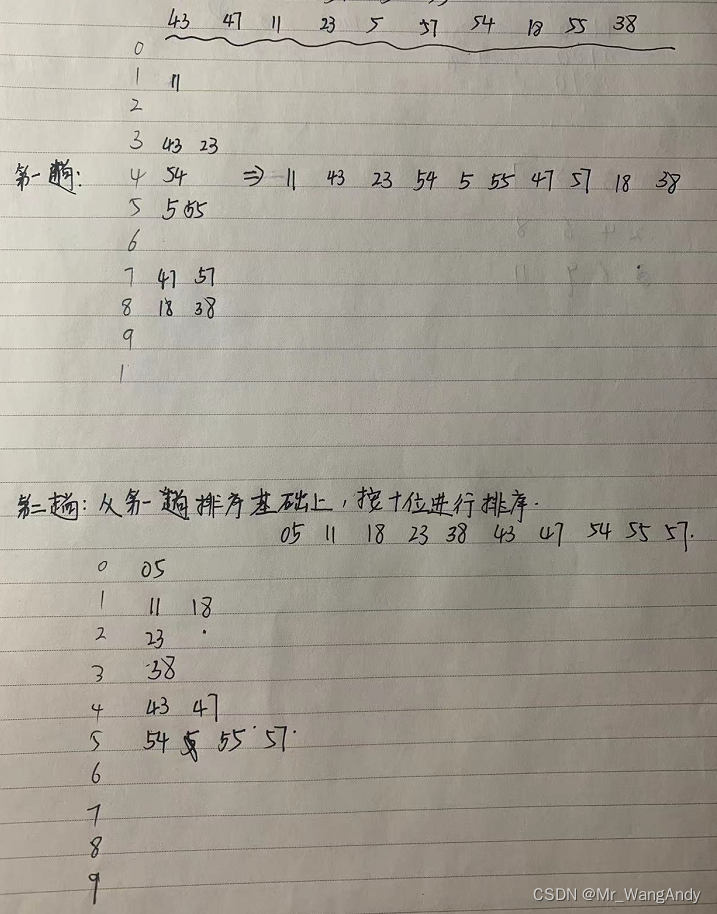 43 47 11 23 5 57 54 18 55 38
0
1 11
2
3 43 23
第一趟: 4 54 ⇒ 11 43 23 54 5 55 47 57 18 38
5 5 55
6
7 47 57
8 18 38
9
1
第二趟: 从第一趟排序基础上,按十位进行排序.
05 11 18 23 38 43 47 54 55 57.
0 05
1 11 18
2 23
3 38
4 43 47
5 54 55 57
6
7
8
9
CSDN @Mr_WangAndy